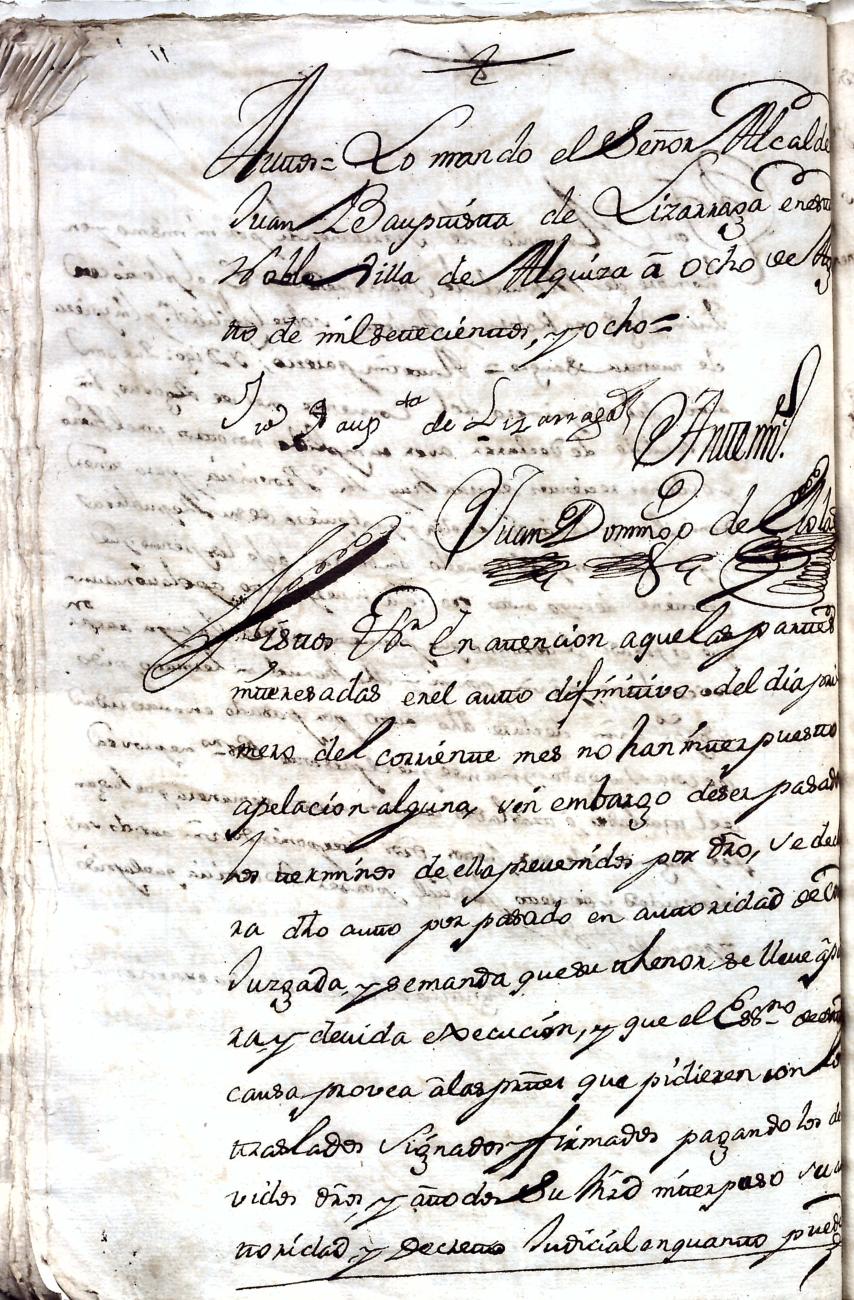 Auttos = Lo mando el Señor Alcalde
Juan Bauptistta de Lizarraga en esta
Noble Villa de Alquiza â ocho de Ag
tto de mil settecienttos, y ocho =
Jn Baupta de Lizarraga Antte mi
Juan Domingo de
Visttos &a En attencion a que las parttes
intteresadas en el autto difinitivo del dia pri
mero del corrientte mes no han intterpuestto
apelacion alguna, sin embargo de ser pasad
los tterminos de ella prevenidos por dro, se decl
ra dho autto por pasado en auttoridad de
Juzgada, y se manda que su thenor se lleve â p
ra, y devida execucion, y que el Essno de
causa provea â las parttes que pidieren con
ttraslados signados, y firmados pagando los de
vidos dros, y â ttodos Su Mrd intterpuso su
ttoridad, y Decretto Judicial en quantto pued